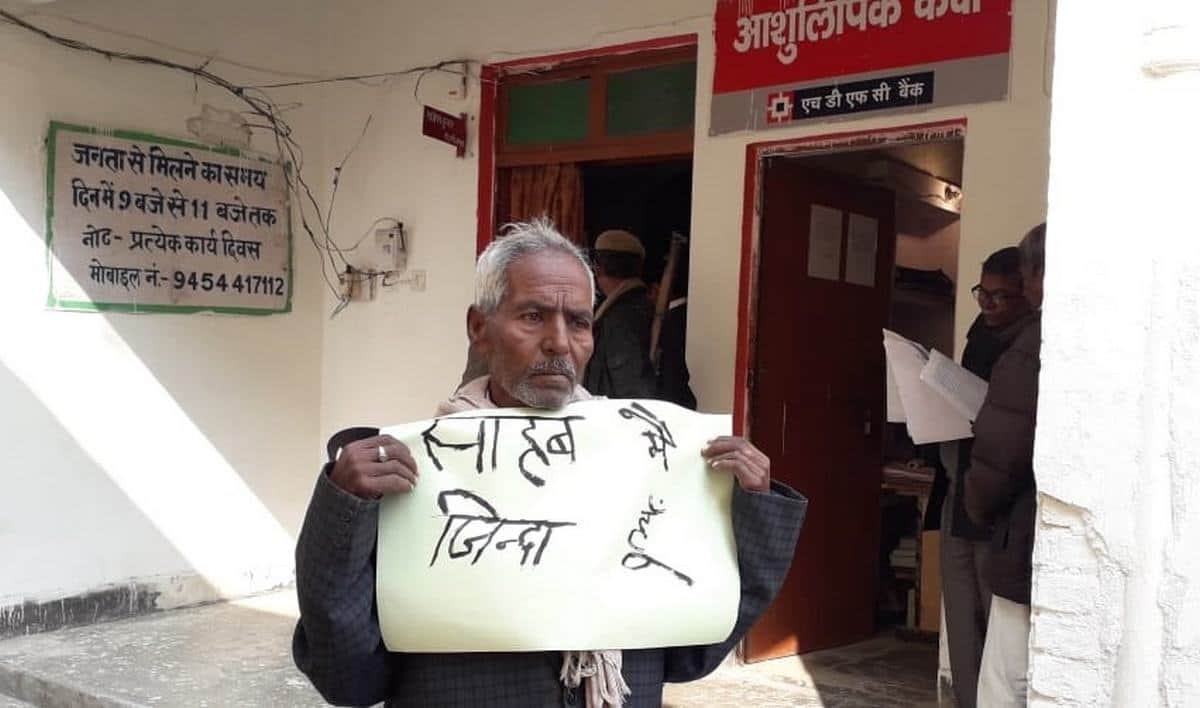 जनता से मिलने का समय
दिन में 9 बजे से 11 बजे तक
नोट- प्रत्येक कार्य दिवस
मोबाइल नं.- 9454417112
आशुलिपिक कक्ष
एच डी एफ सी बैंक
साहब मैं
जिन्दा हूँ